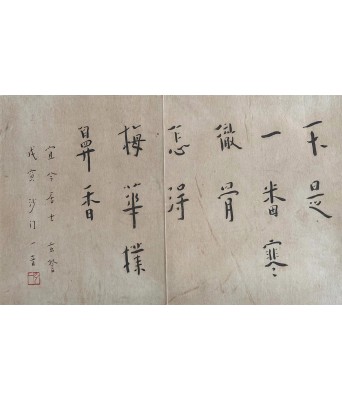 不是
一番寒
徹骨
怎得
梅華撲
鼻香
居士
戊寅沙門一音